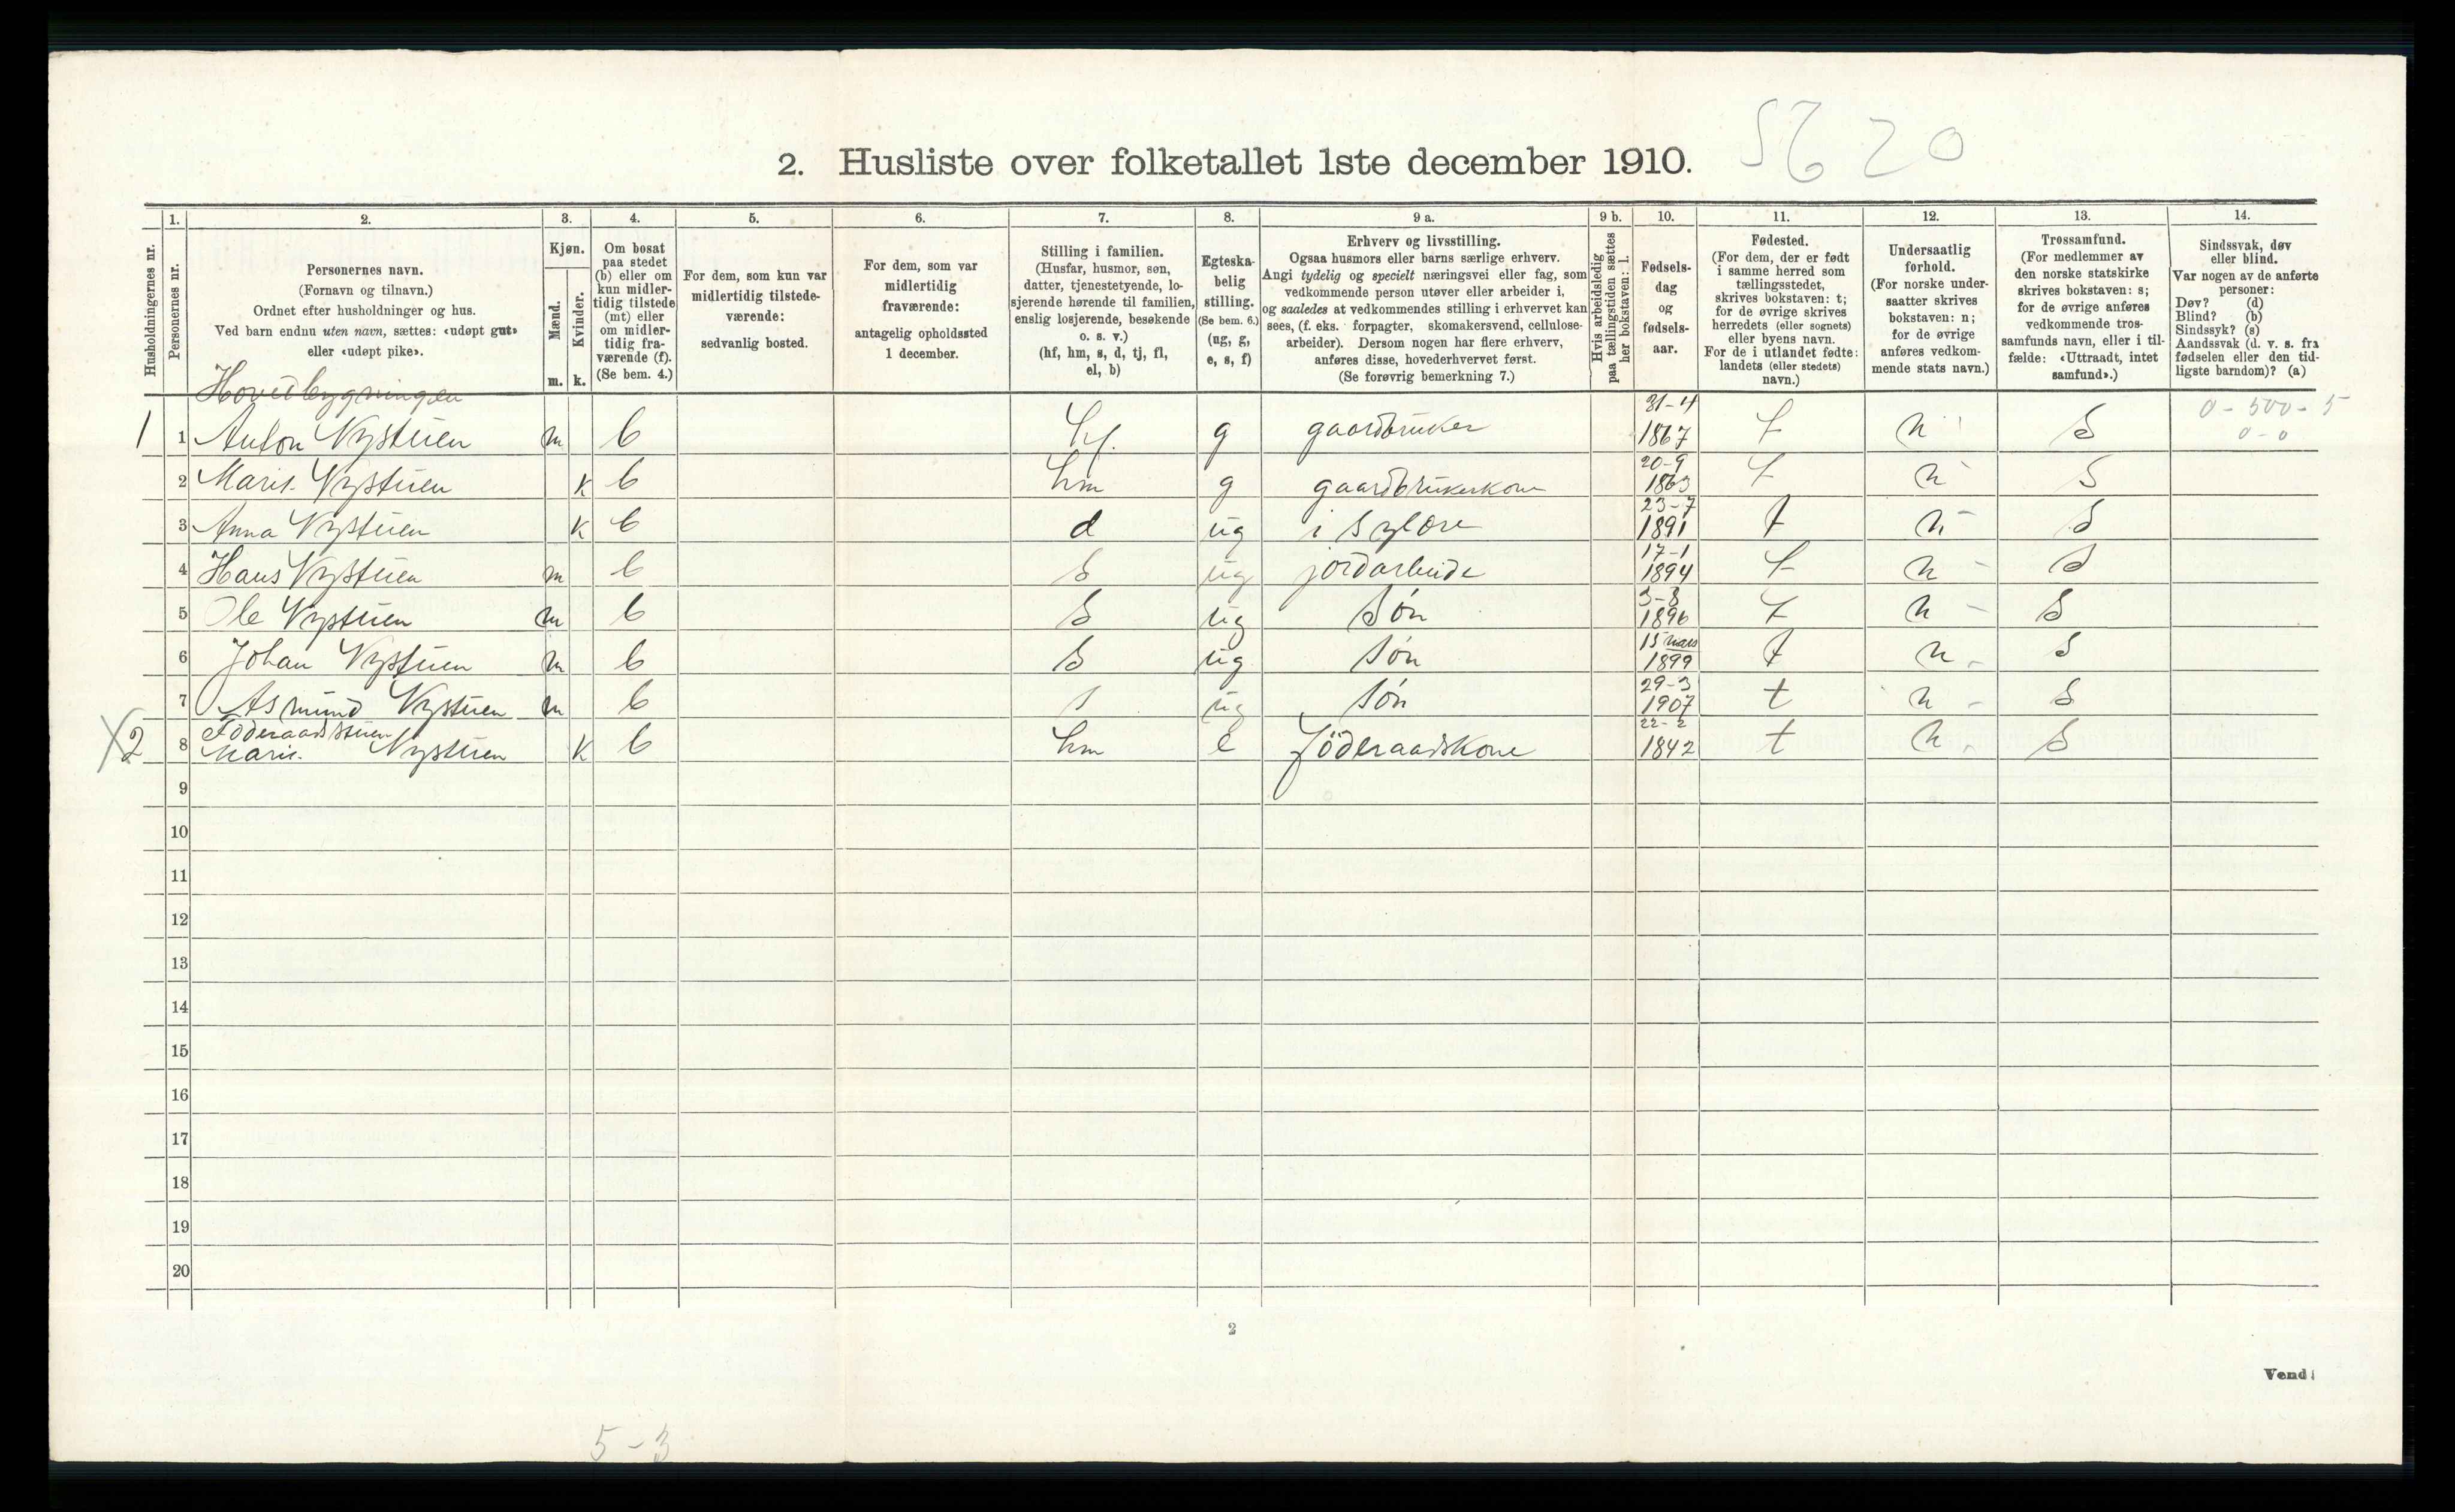 5620
2. Husliste over folketallet 1ste december 1910.
1. 2. 3. 4. 5. 6. 7. 8. 9 a. 9 b. 10. 11. 12. 13. 14.
Husholdningernes nr.
Personernes nr.
Personernes navn.
(Fornavn og tilnavn.)
Ordnet efter husholdninger og hus.
Ved barn endnu uten navn, sættes: «udøpt gut»
eller «udøpt pike».
Kjøn.
Mænd.
Kvinder.
m. k.
Om bosat
paa stedet
(b) eller om
kun midler-
tidig tilstede
(mt) eller
om midler-
tidig fra-
værende (f).
(Se bem. 4.)
For dem, som kun var
midlertidig tilstede-
værende:
sedvanlig bosted.
For dem, som var
midlertidig
fraværende:
antagelig opholdssted
1 december.
Stilling i familien.
(Husfar, husmor, søn,
datter, tjenestetyende, lo-
sjerende hørende til familien,
enslig losjerende, besøkende
o. s. v.)
(hf, hm, s, d, tj, fl,
el, b)
Egteska-
belig
stilling.
(Se bem. 6.)
(ug, g,
e, s, f)
Erhverv og livsstilling.
Ogsaa husmors eller barns særlige erhverv.
Angi tydelig og specielt næringsvei eller fag, som
vedkommende person utøver eller arbeider i,
og saaledes at vedkommendes stilling i erhvervet kan
sees, (f. eks. forpagter, skomakersvend, cellulose-
arbeider). Dersom nogen har flere erhverv,
anføres disse, hovederhvervet først.
(Se forøvrig bemerkning 7.)
Hvis arbeidsledig
paa tællingstiden sættes
her bokstaven: l.
Fødsels-
dag
og
fødsels-
aar.
Fødested.
(For dem, der er født
i samme herred som
tællingsstedet,
skrives bokstaven: t;
for de øvrige skrives
herredets (eller sognets)
eller byens navn.
For de i utlandet fødte:
landets (eller stedets)
navn.)
Undersaatlig
forhold.
(For norske under-
saatter skrives
bokstaven: n;
for de øvrige
anføres vedkom-
mende stats navn.)
Trossamfund.
(For medlemmer av
den norske statskirke
skrives bokstaven: s;
for de øvrige anføres
vedkommende tros-
samfunds navn, eller i til-
fælde: «Uttraadt, intet
samfund».)
Sindssvak, døv
eller blind.
Var nogen av de anførte
personer:
Døv? (d)
Blind? (b)
Sindssyk? (s)
Aandssvak (d. v. s. fra
fødselen eller den tid-
ligste barndom)? (a)
Hovedbygningen
1 1 Anton Nystuen m b hf. g gaardbruker 31-4 1867 t n s 0-500-5
0-0
2 Marit Nystuen k b hm g gaardbrukerkone 20-9 1863 t n s
3 Anna Nystuen k b d ug i sylære 23-7 1891 t n s
4 Hans Nystuen m b s ug jordarbeide 17-1 1894 t n s
5 Ole Nystuen m b s ug Søn 3-8 1896 t n s
6 Johan Nystuen m b s ug Søn 15 mars 1899 t n s
7 Asmund Nystuen m b s ug Søn 29-3 1907 t n s
Föderaadsstuen
X2 8 Marit Nystuen k b hm e Föderaadskone 22-2 1842 t n s
9
10
11
12
13
14
15
16
17
18
19
20
2
Vend!
5-3